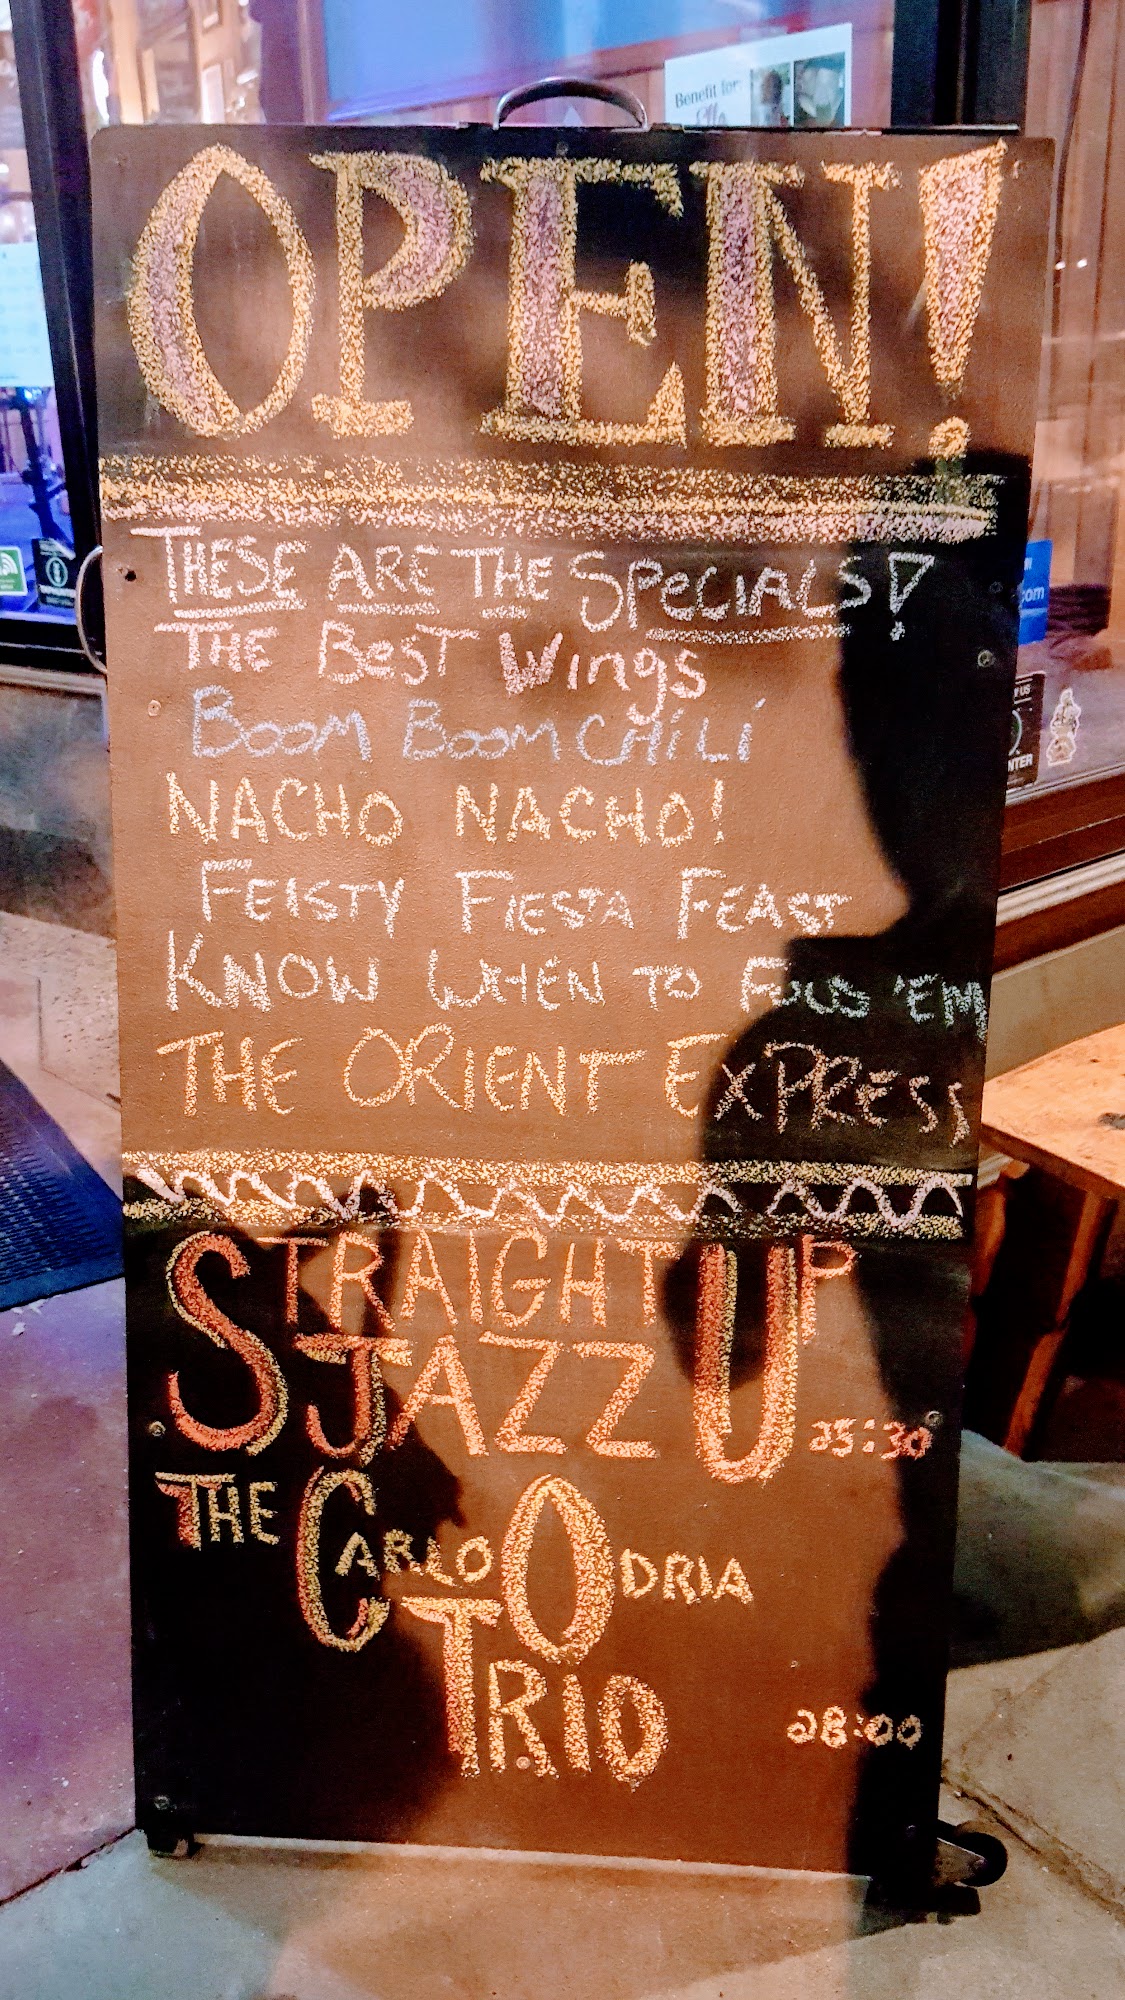 Benefit for
Ella
OPEN!
THESE ARE THE SPECIALS!
THE BEST WINGS
BOOM BOOM CHILI
NACHO NACHO!
FEISTY FIESTA FEAST
KNOW WHEN TO FOLD 'EM
THE ORIENT EXPRESS
STRAIGHT UP
JAZZ
THE CARLO ODRIA
TRIO